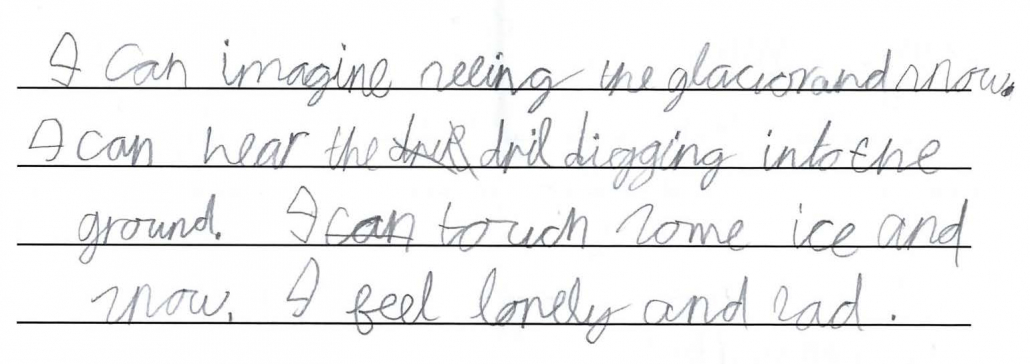 I can imagine seeing the glacior and snow.
I can hear the dril digging into the
ground. I can touch some ice and
snow. I feel lonely and sad.